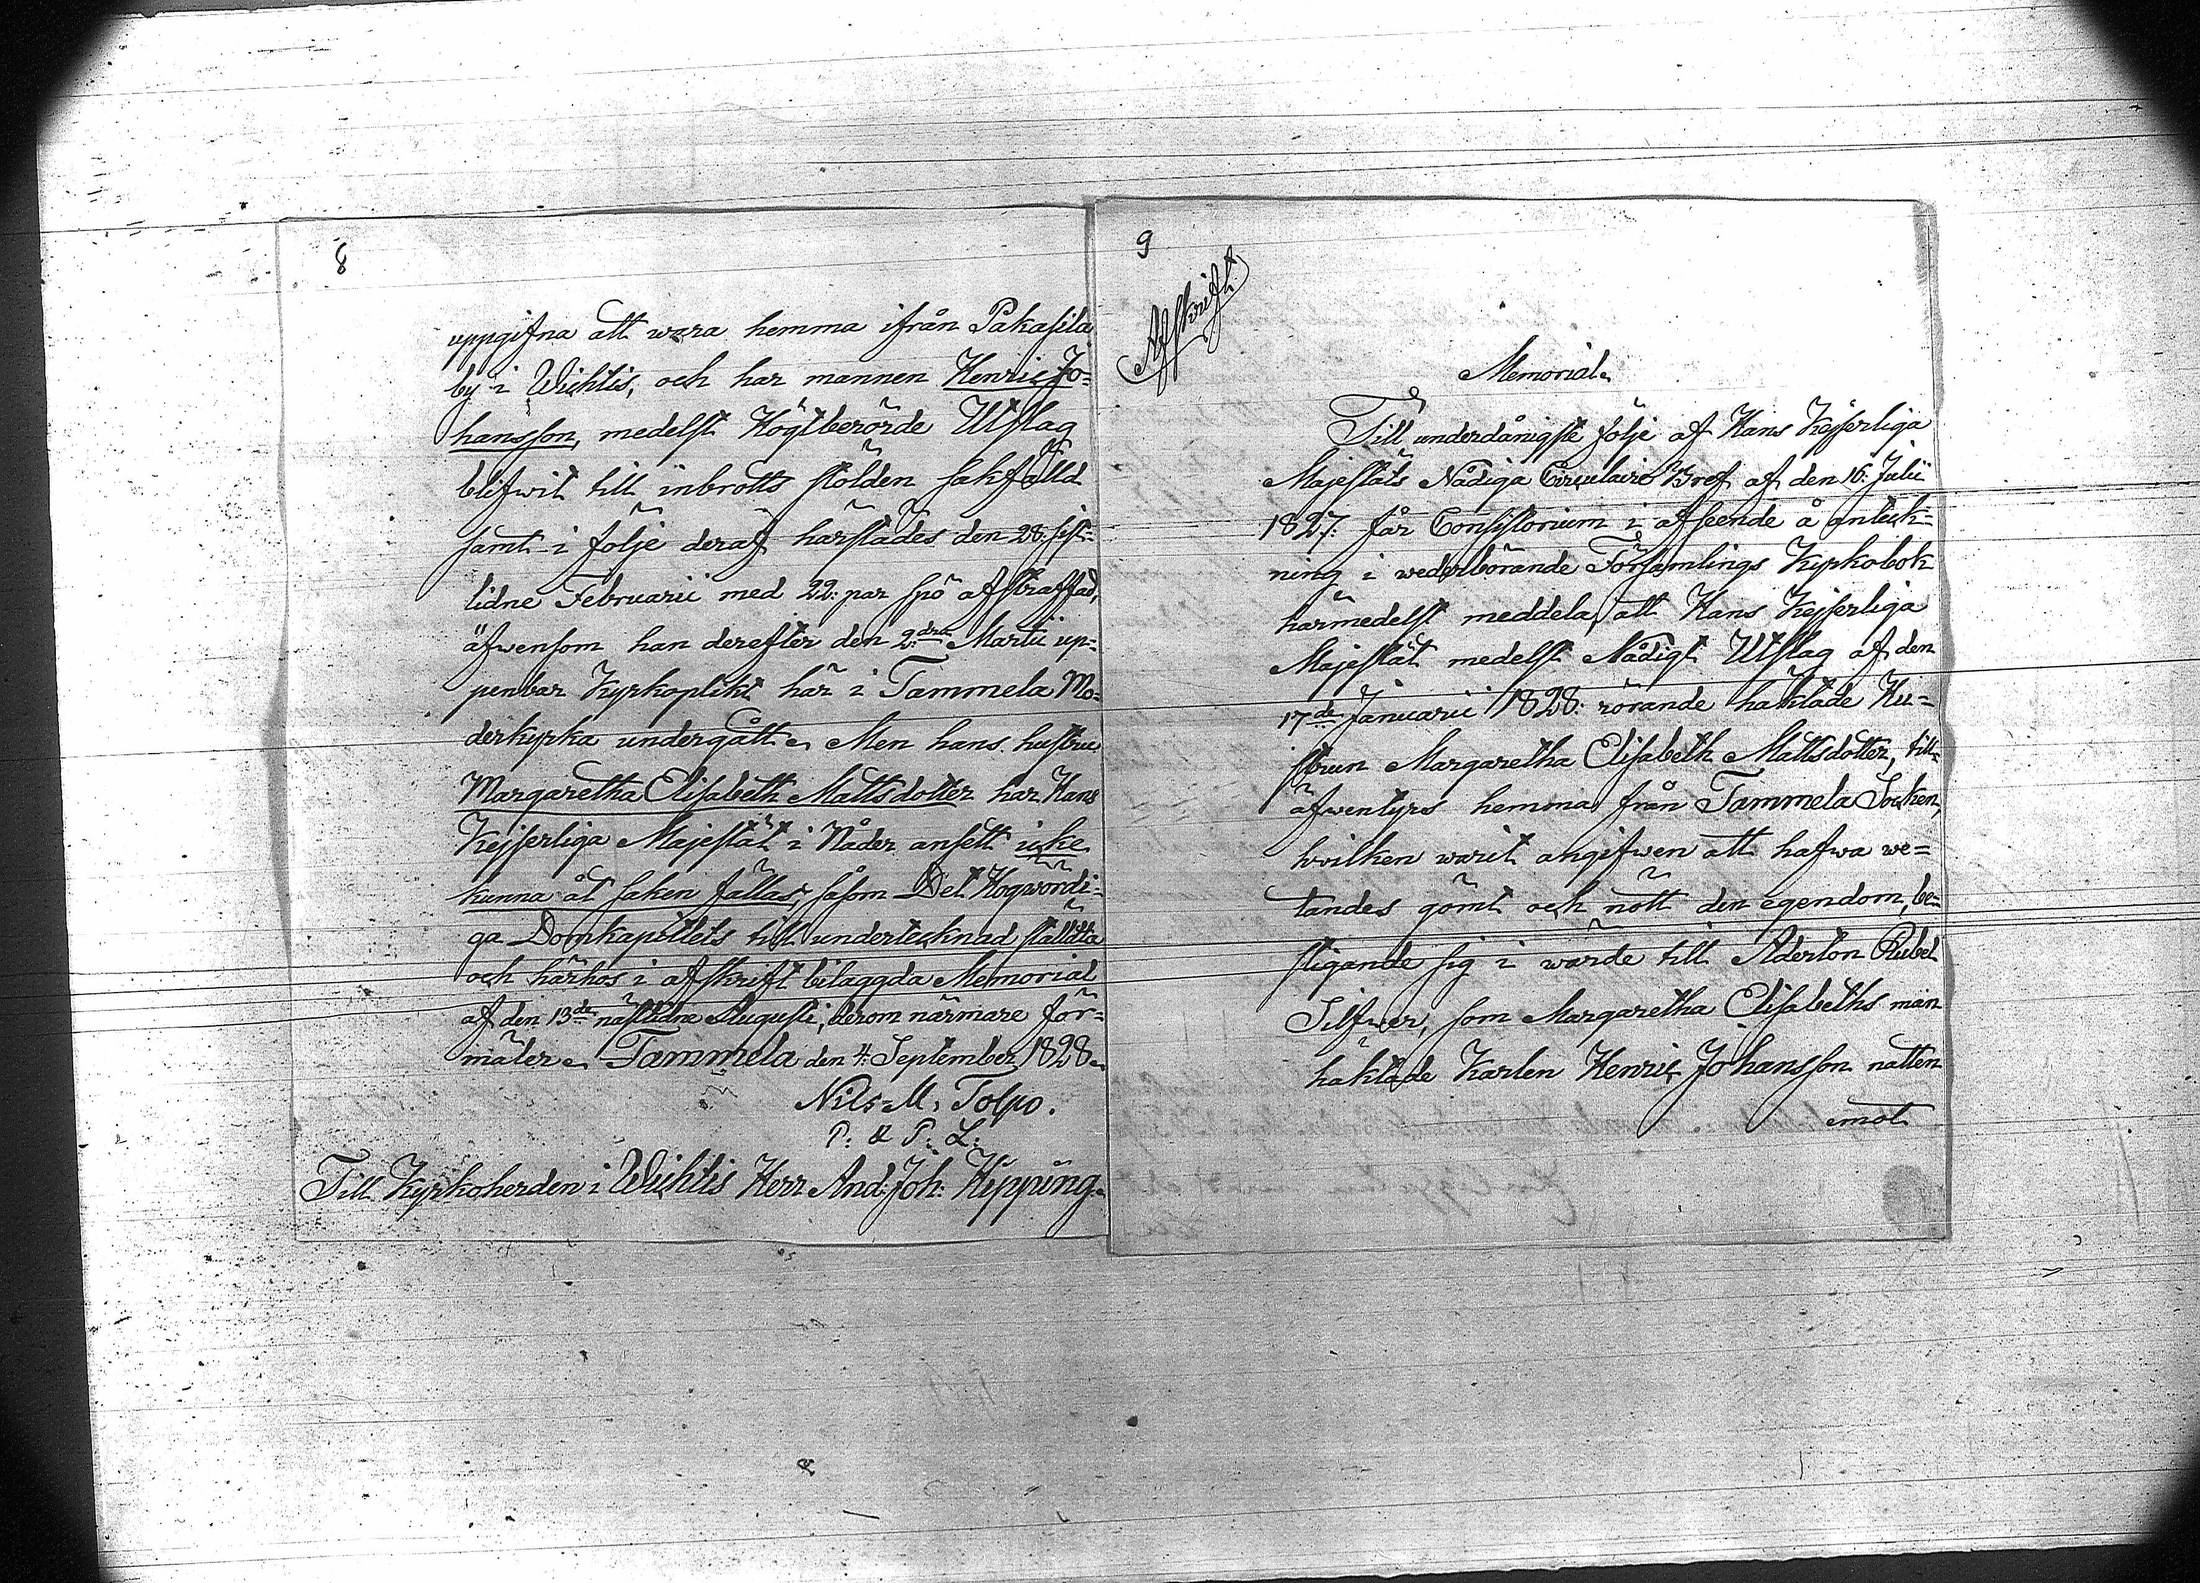 8
uppgifna att wara hemma ifrån Pakasila
by i Wichtis, och har mannen Henric Jo=
hansson, medelst Högstberörde Utslag
blifwit till inbrotts stölden sakfälld
samt i följe deraf härstädes den 28: sist=
lidne Februarii med 22: par spö afstraffad,
äfwensom han derefter den 2:dra Martii up=
penbar Kyrkoplikt här i Tammela Mo=
derkyrka undergått. Men hans hustru
Margaretha Elisabeth Mattsdotter har Hans
Kejserliga Majestät i Nåder ansett icke
kunna åt saken fällas, såsom Det Högwördi=
ga Domkapitlets till undertecknad ställdta
och härhos i afskrift bilaggda Memorial
af den 13de nästlidne Augusti, derom närmare för=
mäler. Tammela den 4: September 1828.
Nils M. Tolpo.
P: & P: L:
Till Kyrkoherden i Wichtis Herr And: Joh: Hipping.
9
Afskrift
Memorial.
Till underdånigste följe af Hans Kejserliga
Majestäts Nådiga Circulaire Bref af den 16: Julii
1827: får Consistorium i afseende å anteck=
ning i wederbörande Församlings Kyrkobok
härmedelst meddela, att Hans Kejserliga
Majestät medelst Nådigt Utslag af den
17de Januarii 1828: rörande häktade Hu=
strun Margaretha Elisabeth Mattsdotter, till=
äfwentyrs hemma från Tammela Socken,
hvilken warit angifwen att hafwa we=
tandes gömt och nött den egendom, be=
stigande sig i wärde till Aderton Rubel
Silfwer, som Margaretha Elisabeths man
häktade Karlen Henric Johansson natten
emot